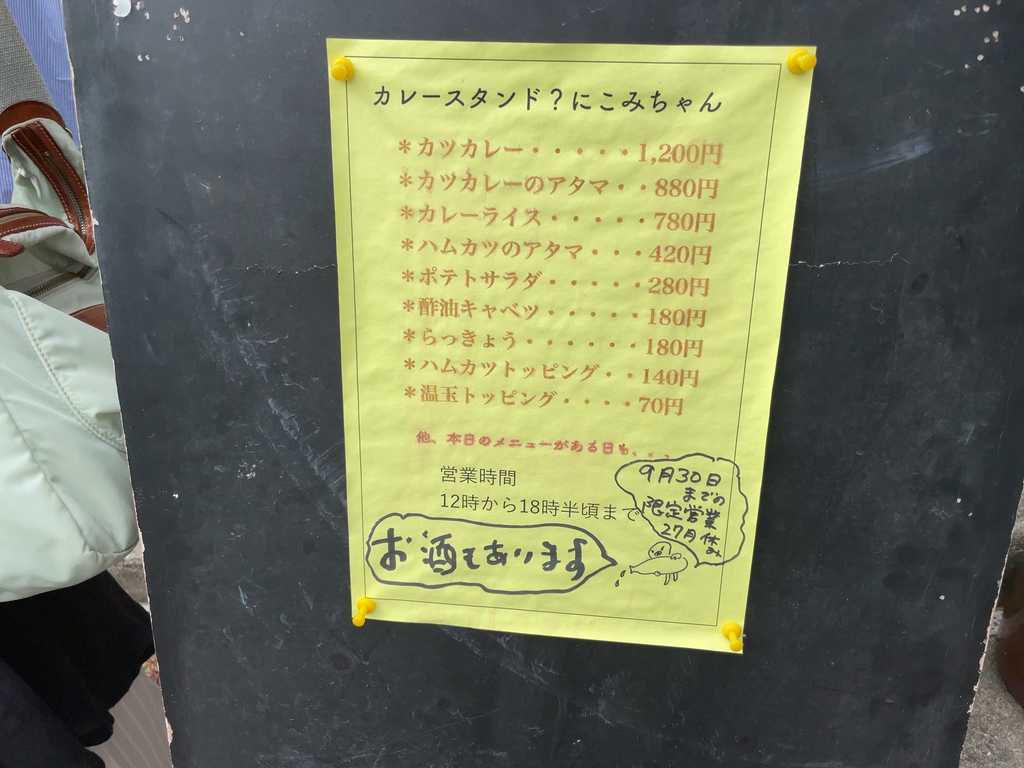 カレースタンド？にこみちゃん
＊カツカレー・・・・・1,200円
＊カツカレーのアタマ・・880円
＊カレーライス・・・・・780円
＊ハムカツのアタマ・・・420円
＊ポテトサラダ・・・・・280円
＊酢油キャベツ・・・・・180円
＊らっきょう・・・・・・180円
＊ハムカツトッピング・・140円
＊温玉トッピング・・・・70円
他、本日のメニューがある日も、、、
営業時間
12時から18時半頃まで
9月30日
までの
限定営業
27月休み
お酒もあります